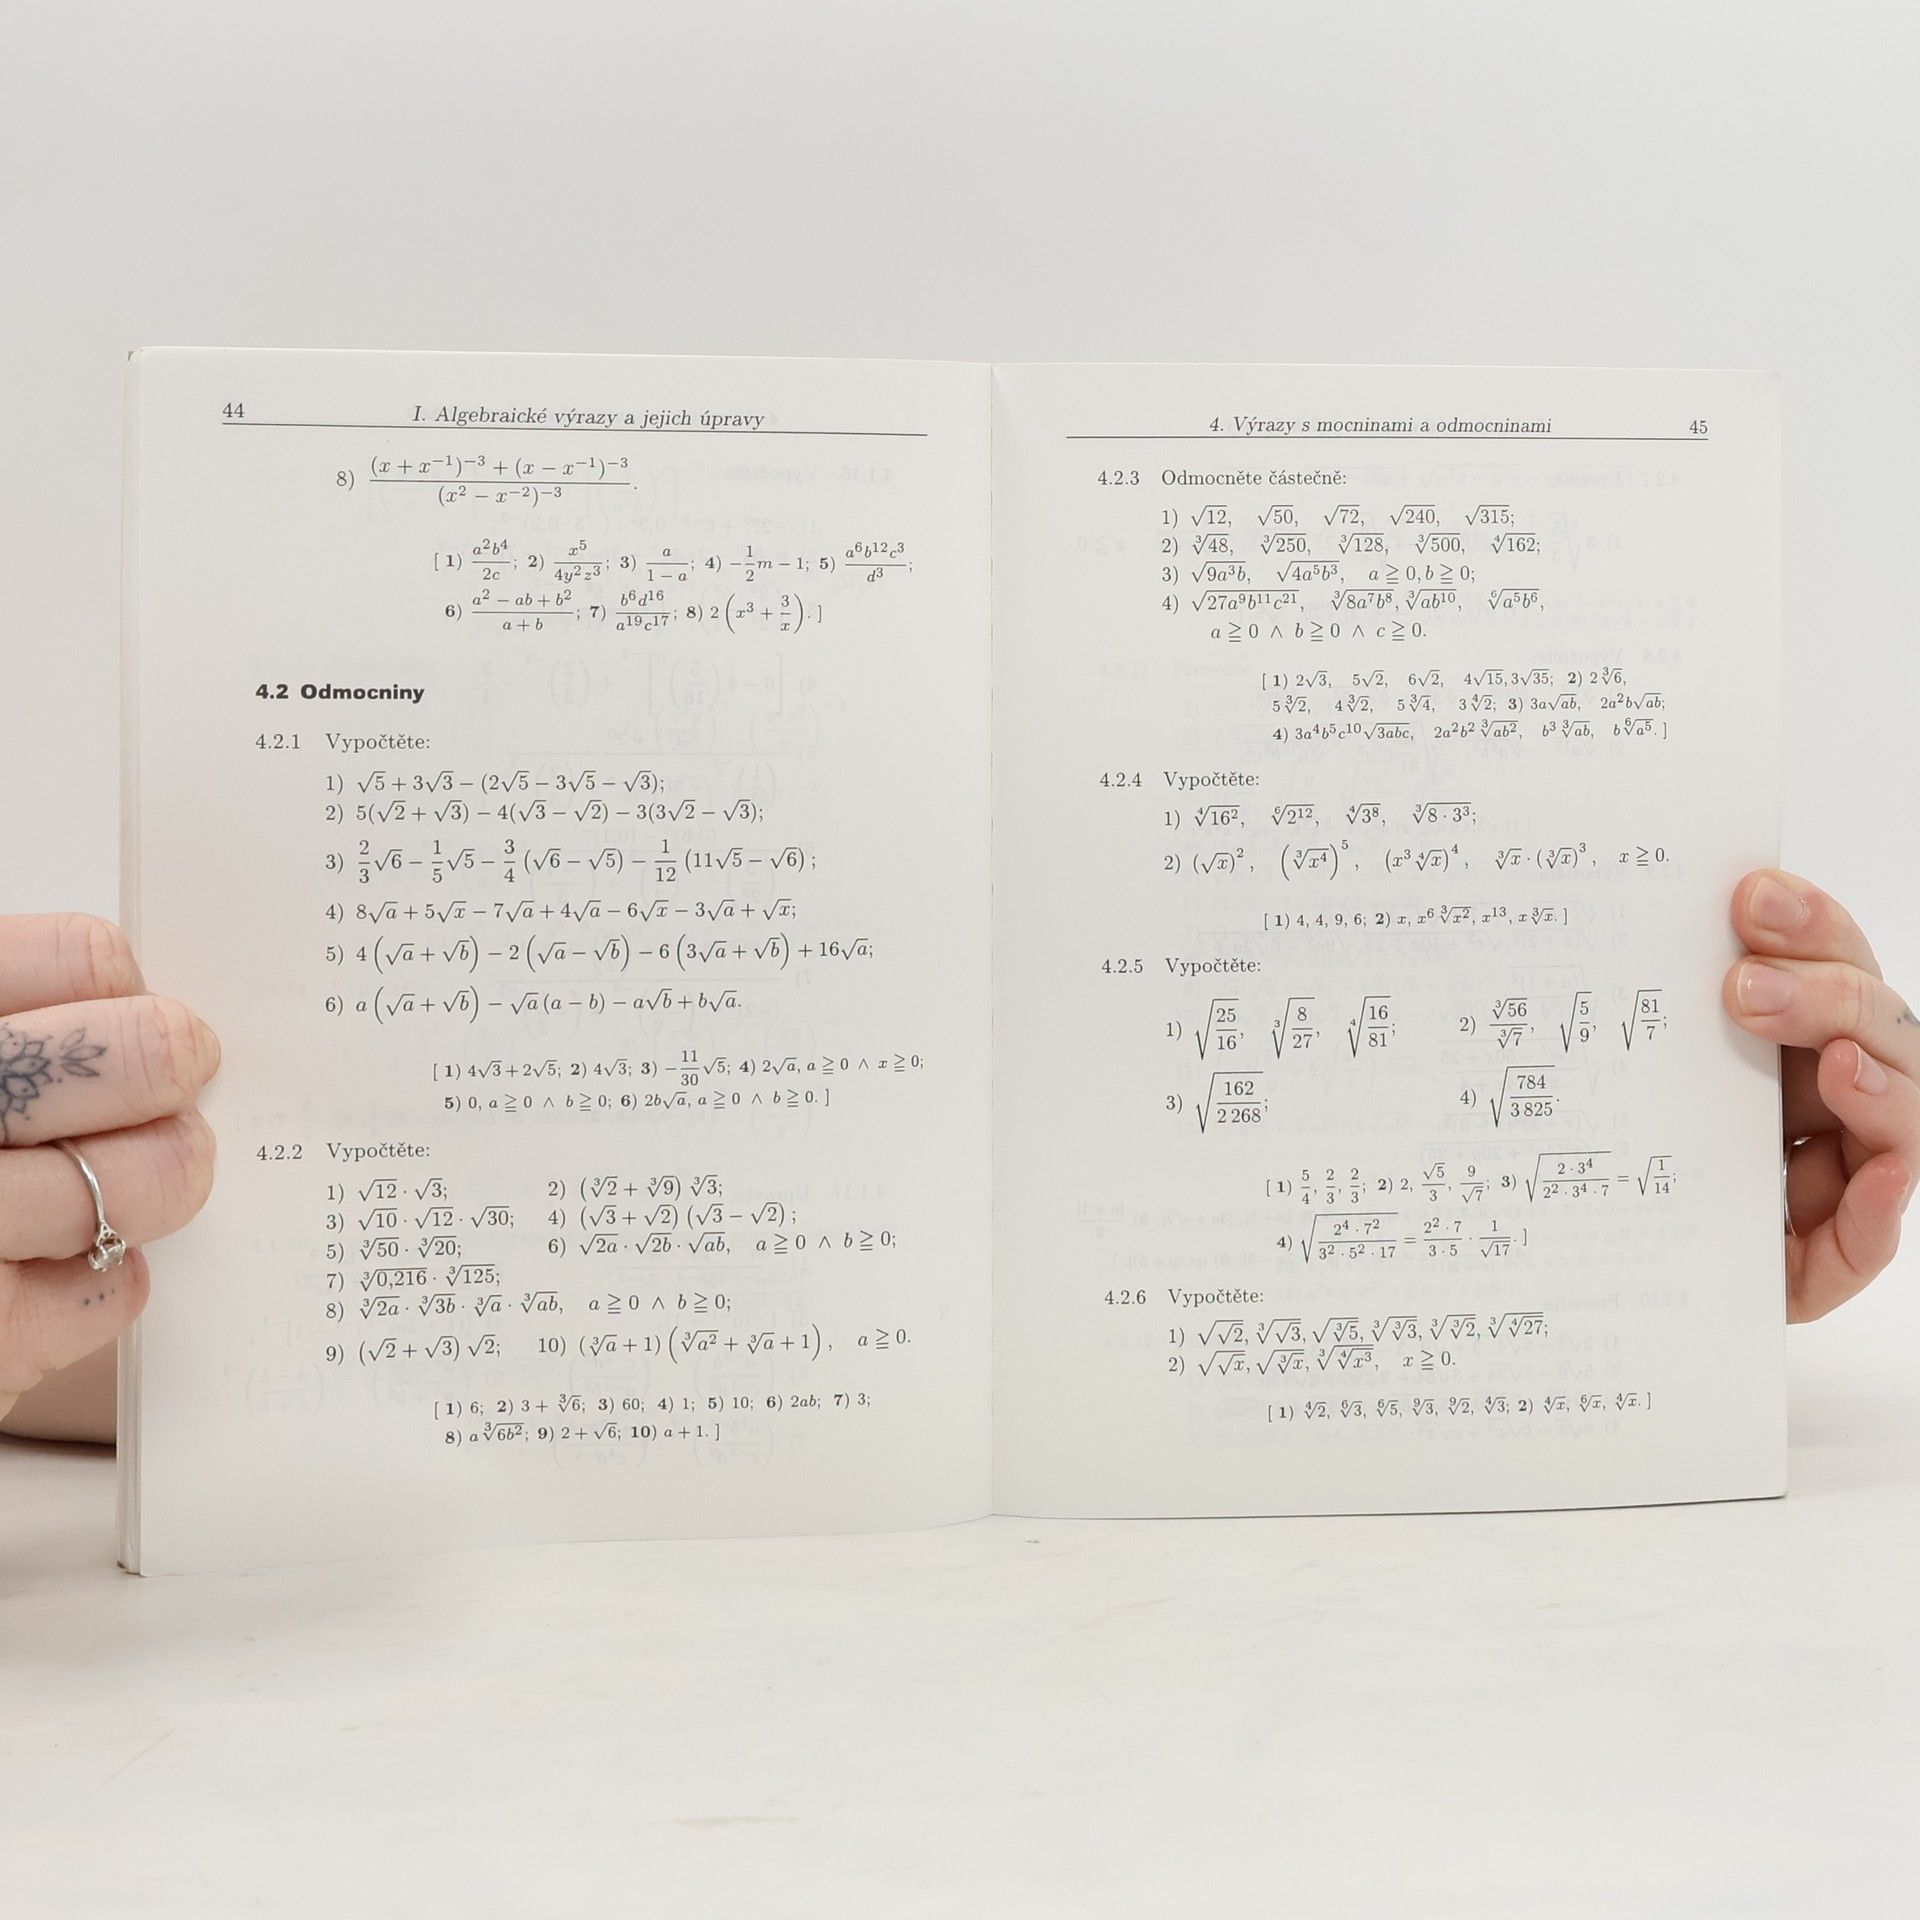 44 I. Algebraické výrazy a jejich úpravy
8) \frac{(x + x^{-1})^{-3} + (x - x^{-1})^{-3}}{(x^2 - x^{-2})^{-3}}.
[ 1) \frac{a^2b^4}{2c}; 2) \frac{x^5}{4y^2z^3}; 3) \frac{a}{1-a}; 4) -\frac{1}{2}m - 1; 5) \frac{a^6b^{12}c^3}{d^3};
6) \frac{a^2 - ab + b^2}{a + b}; 7) \frac{b^6d^{16}}{a^{19}c^{17}}; 8) 2(x^3 + \frac{3}{x}). ]
4.2 Odmocniny
4.2.1 Vypočtěte:
1) √5 + 3√3 − (2√5 − 3√5 − √3);
2) 5(√2 + √3) − 4(√3 − √2) − 3(3√2 − √3);
3) \frac{2}{3}√6 − \frac{1}{5}√5 − \frac{3}{4}(√6 − √5) − \frac{1}{12}(11√5 − √6);
4) 8√a + 5√x − 7√a + 4√a − 6√x − 3√a + √x;
5) 4(√a + √b) − 2(√a − √b) − 6(3√a + √b) + 16√a;
6) a(√a + √b) − √a(a − b) − a√b + b√a.
[ 1) 4√3 + 2√5; 2) 4√3; 3) −\frac{11}{30}√5; 4) 2√a, a ≧ 0 ∧ x ≧ 0;
5) 0, a ≧ 0 ∧ b ≧ 0; 6) 2b√a, a ≧ 0 ∧ b ≧ 0. ]
4.2.2 Vypočtěte:
1) √12 · √3; 2) (∛2 + ∛9) ∛3;
3) √10 · √12 · √30; 4) (√3 + √2)(√3 − √2);
5) ∛50 · ∛20; 6) √{2a} · √{2b} · √{ab}, a ≧ 0 ∧ b ≧ 0;
7) ∛{0,216} · ∛125;
8) ∛{2a} · ∛{3b} · ∛a · ∛{ab}, a ≧ 0 ∧ b ≧ 0;
9) (√2 + √3) √2; 10) (∛a + 1)(∛{a^2} + ∛a + 1), a ≧ 0.
[ 1) 6; 2) 3 + ∛6; 3) 60; 4) 1; 5) 10; 6) 2ab; 7) 3;
8) a ∛{6b^2}; 9) 2 + √6; 10) a + 1. ]
4. Výrazy s mocninami a odmocninami 45
4.2.3 Odmocněte částečně:
1) √12, √50, √72, √240, √315;
2) ∛48, ∛250, ∛128, ∛500, ∜162;
3) √{9a^3b}, √{4a^5b^3}, a ≧ 0, b ≧ 0;
4) √{27a^9b^{11}c^{21}}, ∛{8a^7b^8}, ∛{ab^{10}}, \sqrt[6]{a^5b^6},
a ≧ 0 ∧ b ≧ 0 ∧ c ≧ 0.
[ 1) 2√3, 5√2, 6√2, 4√15, 3√35; 2) 2∛6,
5∛2, 4∛2, 5∛4, 3∜2; 3) 3a√{ab}, 2a^2b√{ab};
4) 3a^4b^5c^{10}√{3abc}, 2a^2b^2 ∛{ab^2}, b^3 ∛{ab}, b \sqrt[6]{a^5}. ]
4.2.4 Vypočtěte:
1) ∜{16^2}, \sqrt[6]{2^{12}}, ∜{3^8}, ∛{8 · 3^3};
2) (√x)^2, (∛{x^4})^5, (x^3 ∜x)^4, ∛x · (∛x)^3, x ≧ 0.
[ 1) 4, 4, 9, 6; 2) x, x^6 ∛{x^2}, x^{13}, x∛x. ]
4.2.5 Vypočtěte:
1) √{\frac{25}{16}}, ∛{\frac{8}{27}}, ∜{\frac{16}{81}}; 2) \frac{∛56}{∛7}, √{\frac{5}{9}}, √{\frac{81}{7}};
3) √{\frac{162}{2 268}}; 4) √{\frac{784}{3 825}}.
[ 1) \frac{5}{4}, \frac{2}{3}, \frac{2}{3}; 2) 2, \frac{√5}{3}, \frac{9}{√7}; 3) √{\frac{2 · 3^4}{2^2 · 3^4 · 7}} = √{\frac{1}{14}};
4) √{\frac{2^4 · 7^2}{3^2 · 5^2 · 17}} = \frac{2^2 · 7}{3 · 5} · \frac{1}{√17}. ]
4.2.6 Vypočtěte:
1) √{√2}, ∛{√3}, √{∛5}, ∛{∛3}, ∛{∛2}, ∛{∜27};
2) √{√x}, √{∛x}, ∛{∜{x^3}}, x ≧ 0.
[ 1) ∜2, \sqrt[6]{3}, \sqrt[6]{5}, \sqrt[9]{3}, \sqrt[9]{2}, ∜3; 2) ∜x, \sqrt[6]{x}, ∜x. ]